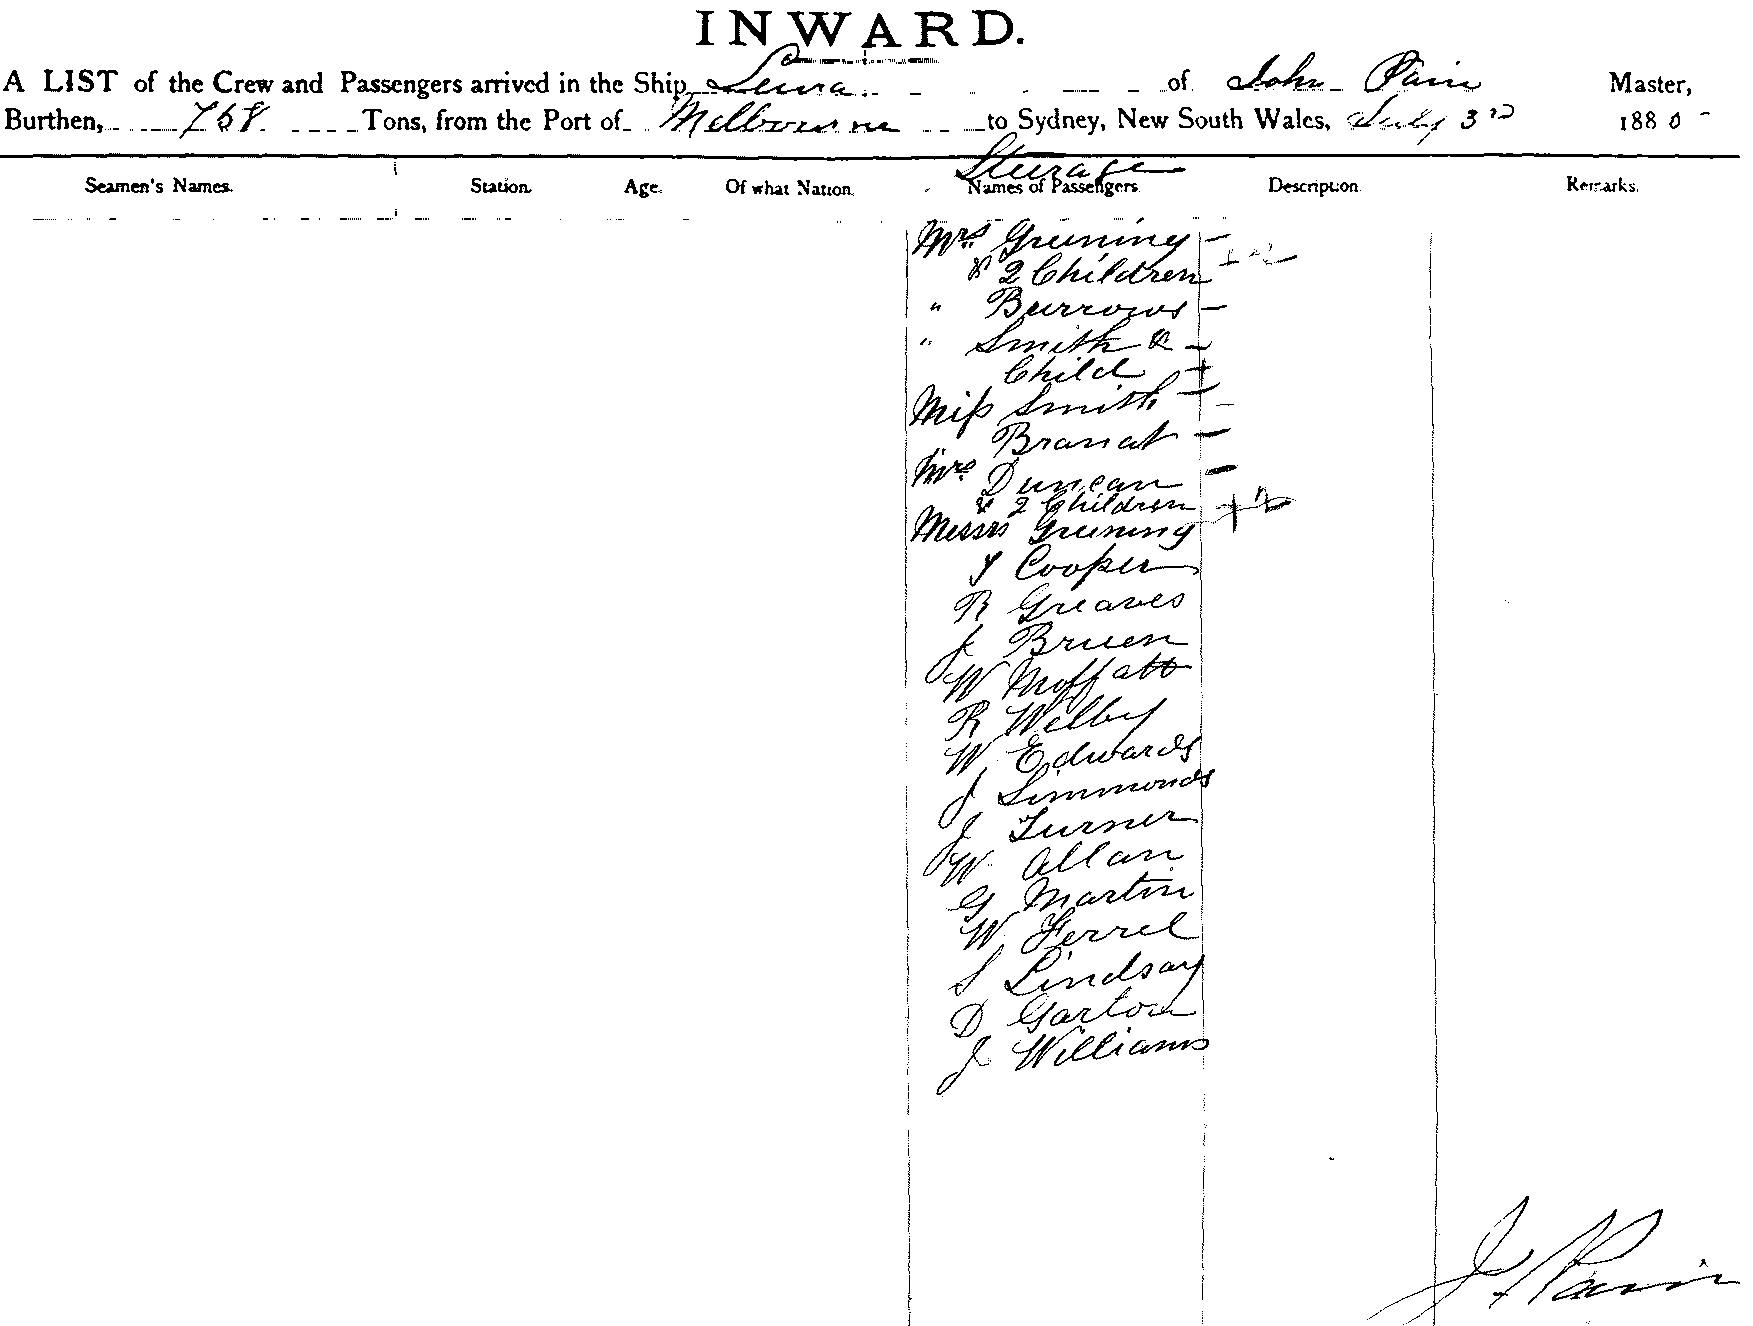 INWARD.
A LIST of the Crew and Passengers arrived in the Ship Leura of John Pain Master,
Burthen, 768 Tons, from the Port of Melbourne to Sydney, New South Wales, July 3rd 1880
Steerage
Seamen's Names. Station. Age. Of what Nation. Names of Passengers. Description. Remarks.
Mrs Gruning
& 2 Children
" Burrows
" Smith &
Child
Miss Smith
Brandt
Mrs Duncan
& 2 Children
Messrs Gruning
Cooper
R Greaves
J Bruen
W Moffatt
R Welby
W Edwards
J Simmonds
J Turner
W Allan
G Martin
W Ferrel
S Lindsay
D Garton
J Williams
J Pain